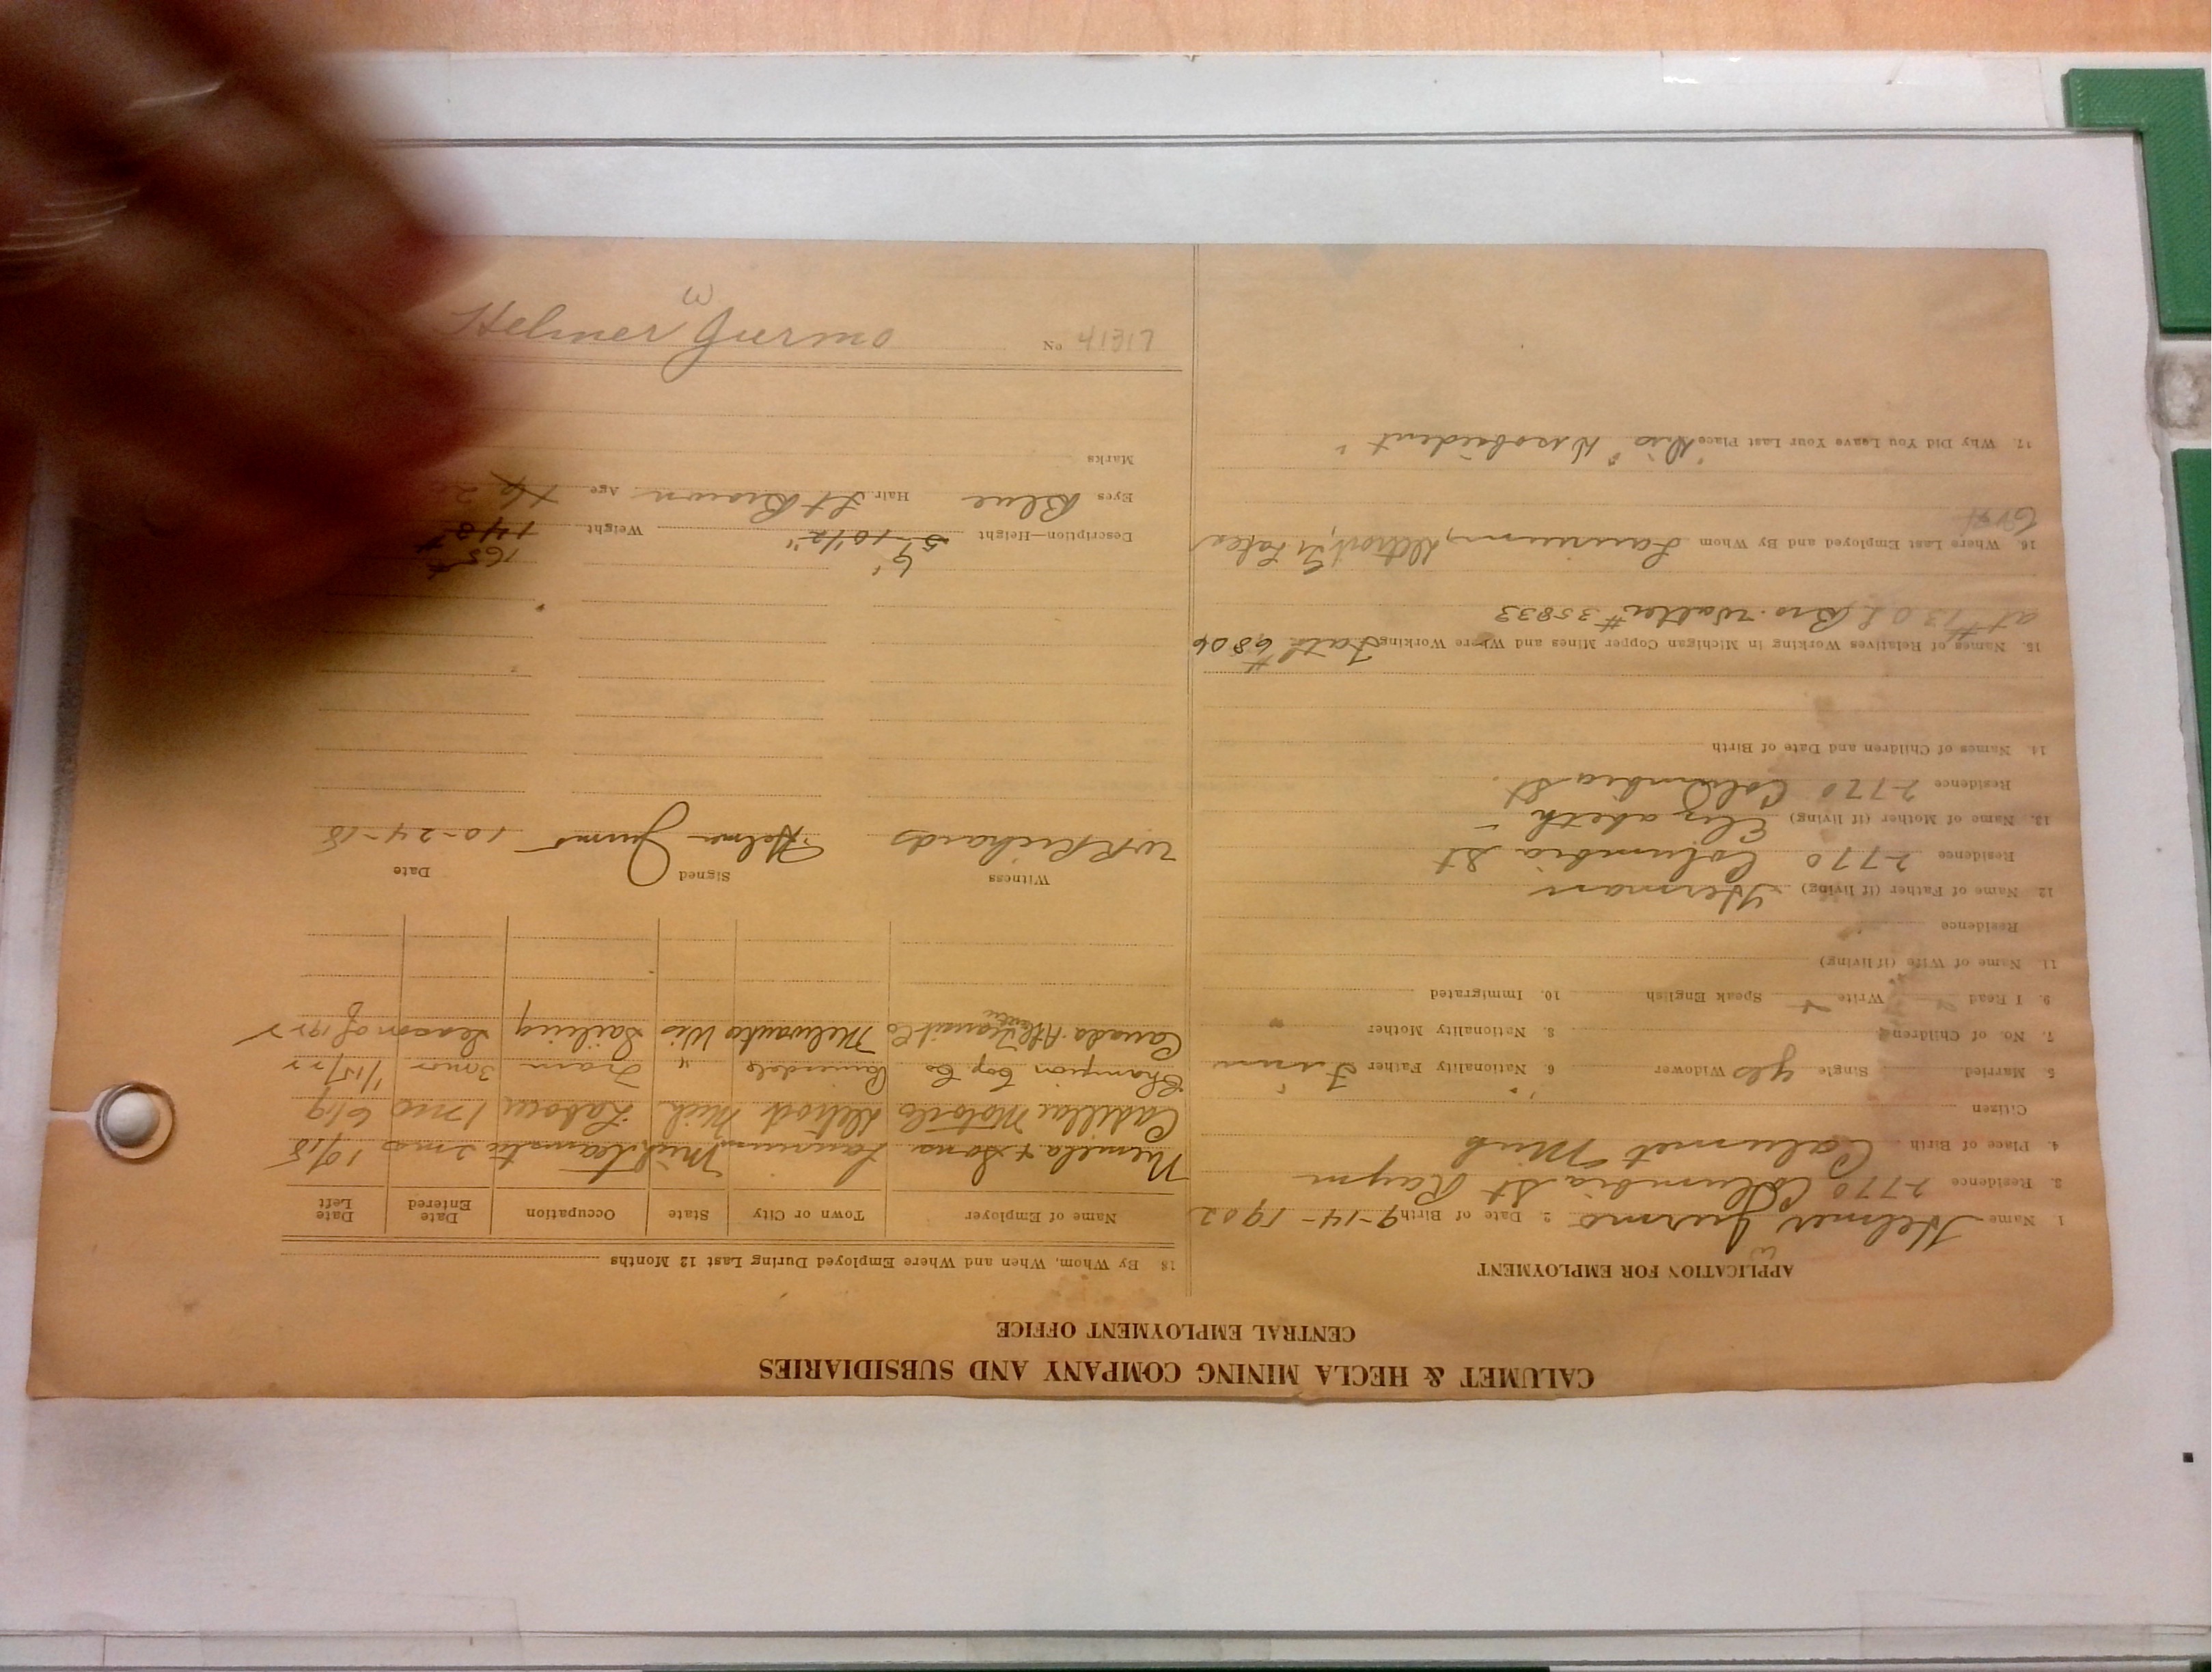 CALUMET & HECLA MINING COMPANY AND SUBSIDIARIES
CENTRAL EMPLOYMENT OFFICE
APPLICATION FOR EMPLOYMENT
W
1. Name Helmer Jurmo 2. Date of Birth 9-14-1902
3. Residence 2770 Columbia St Raym
4. Place of Birth Calumet Mich
Citizen
5. Married Single yes Widower 6. Nationality Father Finn
7. No. of Children 8. Nationality Mother "
9. I Read Write Speak English 10. Immigrated
11. Name of Wife (if living)
Residence
12. Name of Father (if living) Herman
Residence 2770 Columbia St
13. Name of Mother (if living) Elizabeth
Residence 2770 Columbia St.
14. Names of Children and Date of Birth
15. Names of Relatives Working in Michigan Copper Mines and Where Working Fath # 6806
at # 13 O L Bro. Walter # 35833
16. Where Last Employed and By Whom Laurium, Detroit, Gt Lakes
17. Why Did You Leave Your Last Place "Dis" "Disobedient"
18. By Whom, When and Where Employed During Last 12 Months
Name of Employer Town or City State Occupation Date Entered Date Left
Niemela & Sons Laurium Mich Teamster 2 mos 10/18
Cadillac Motor Co Detroit Mich Labor 1 mo 6/19
Champion Cop. Co Painesdale " Tram 3 mos 1/15/22
Canada Atlantic Transit Co Milwaukee Wis Sailing Season of 1922
Witness Signed Date
W R Richards Helmer Jurmo 10-24-18
6' 165#
Description—Height 5'-10 1/2" Weight 148#
Eyes Blue Hair Lt Brown Age 16
Marks
No 41317 Helmer W Jurmo